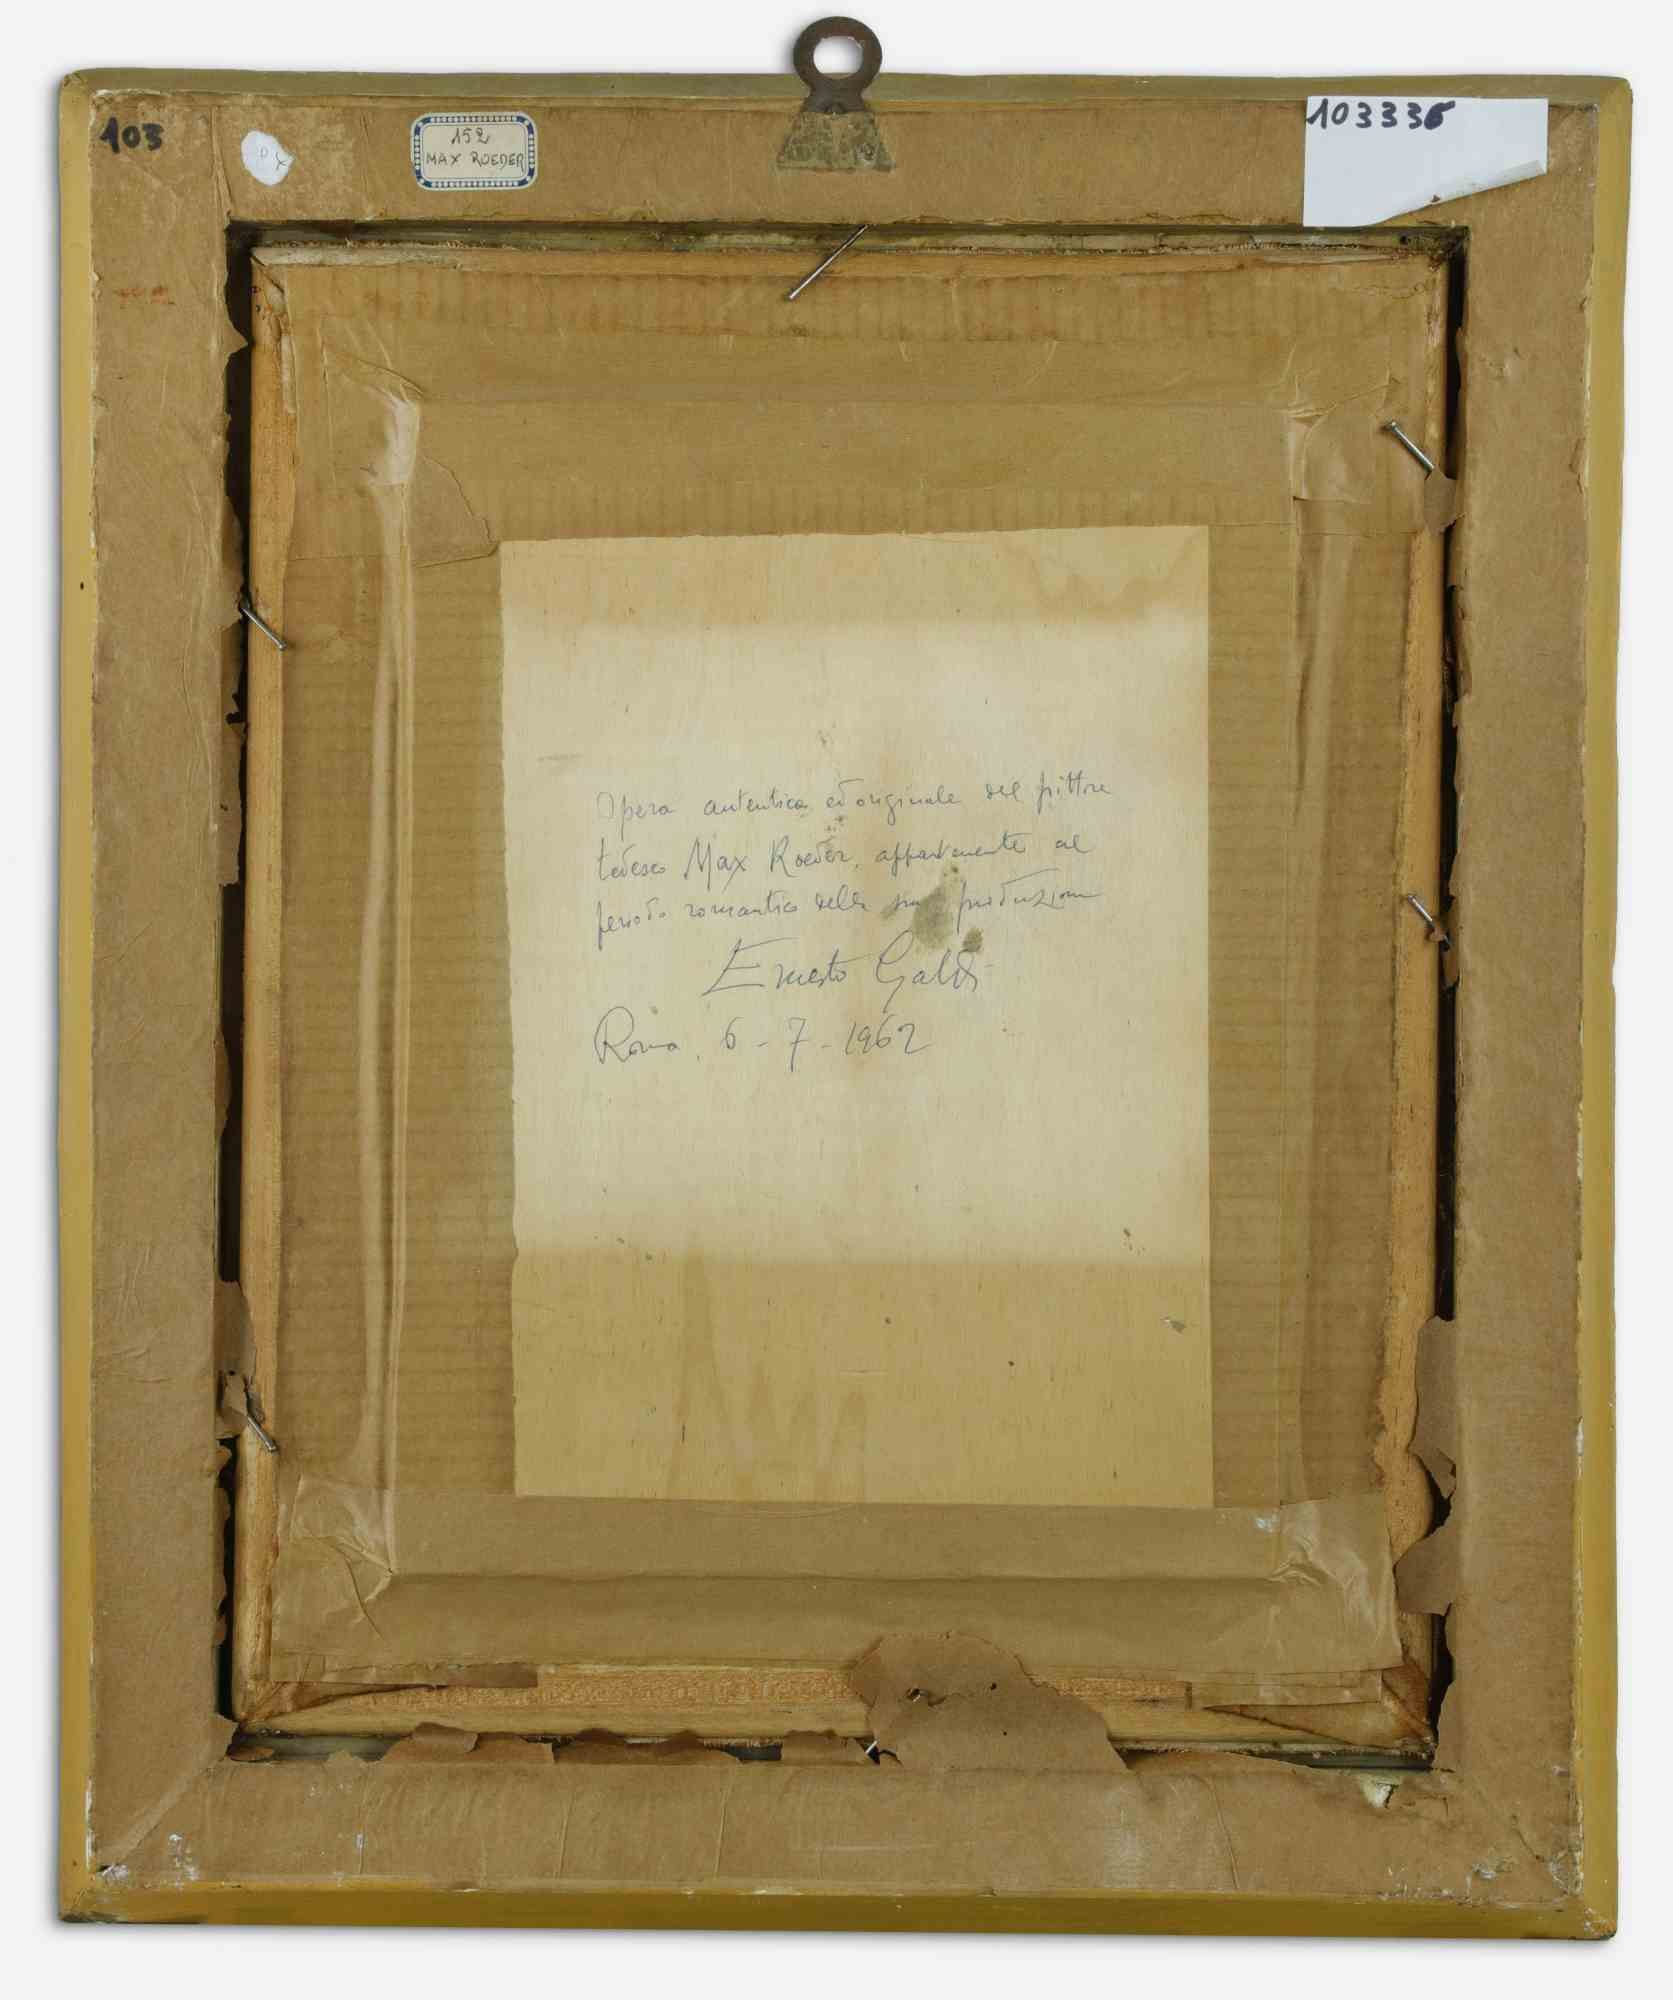 103
152
MAX ROEDER
103336
Opera autentica ed originale del pittore
tedesco Max Roeder, appartenente al
periodo romantico della sua produzione
Ernesto Galdi
Roma, 6-7-1962